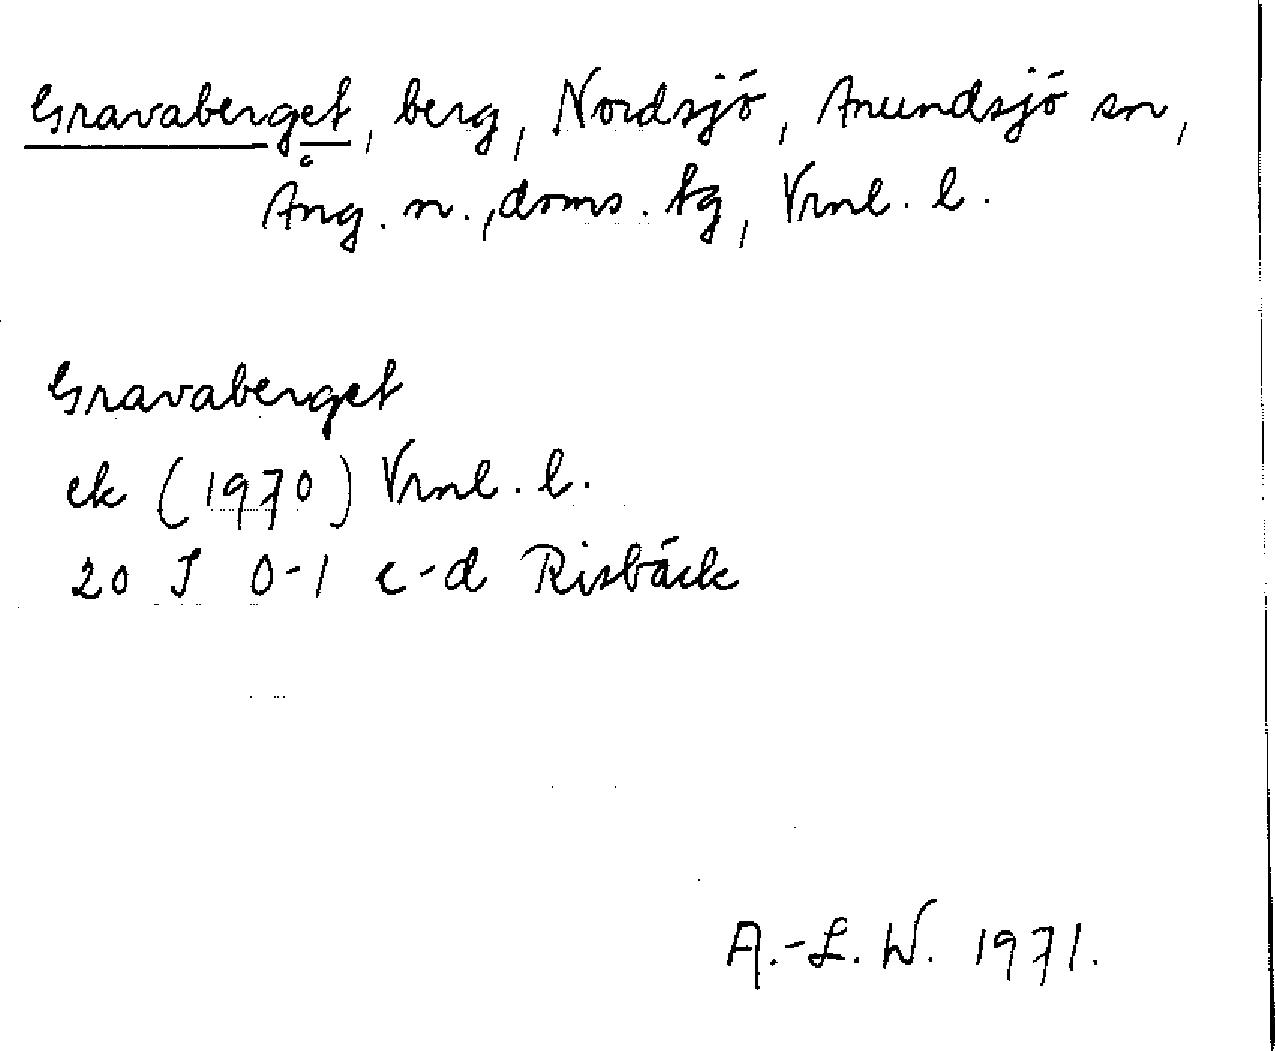 Gravaberget, berg, Nordsjö, Anundsjö sn,
Ång. n., doms. tg, Vrnl. l.
Gravaberget
ek (1970) Vrnl. l.
20 J 0-1 c-d Risbäck
A.-L. W. 1971.